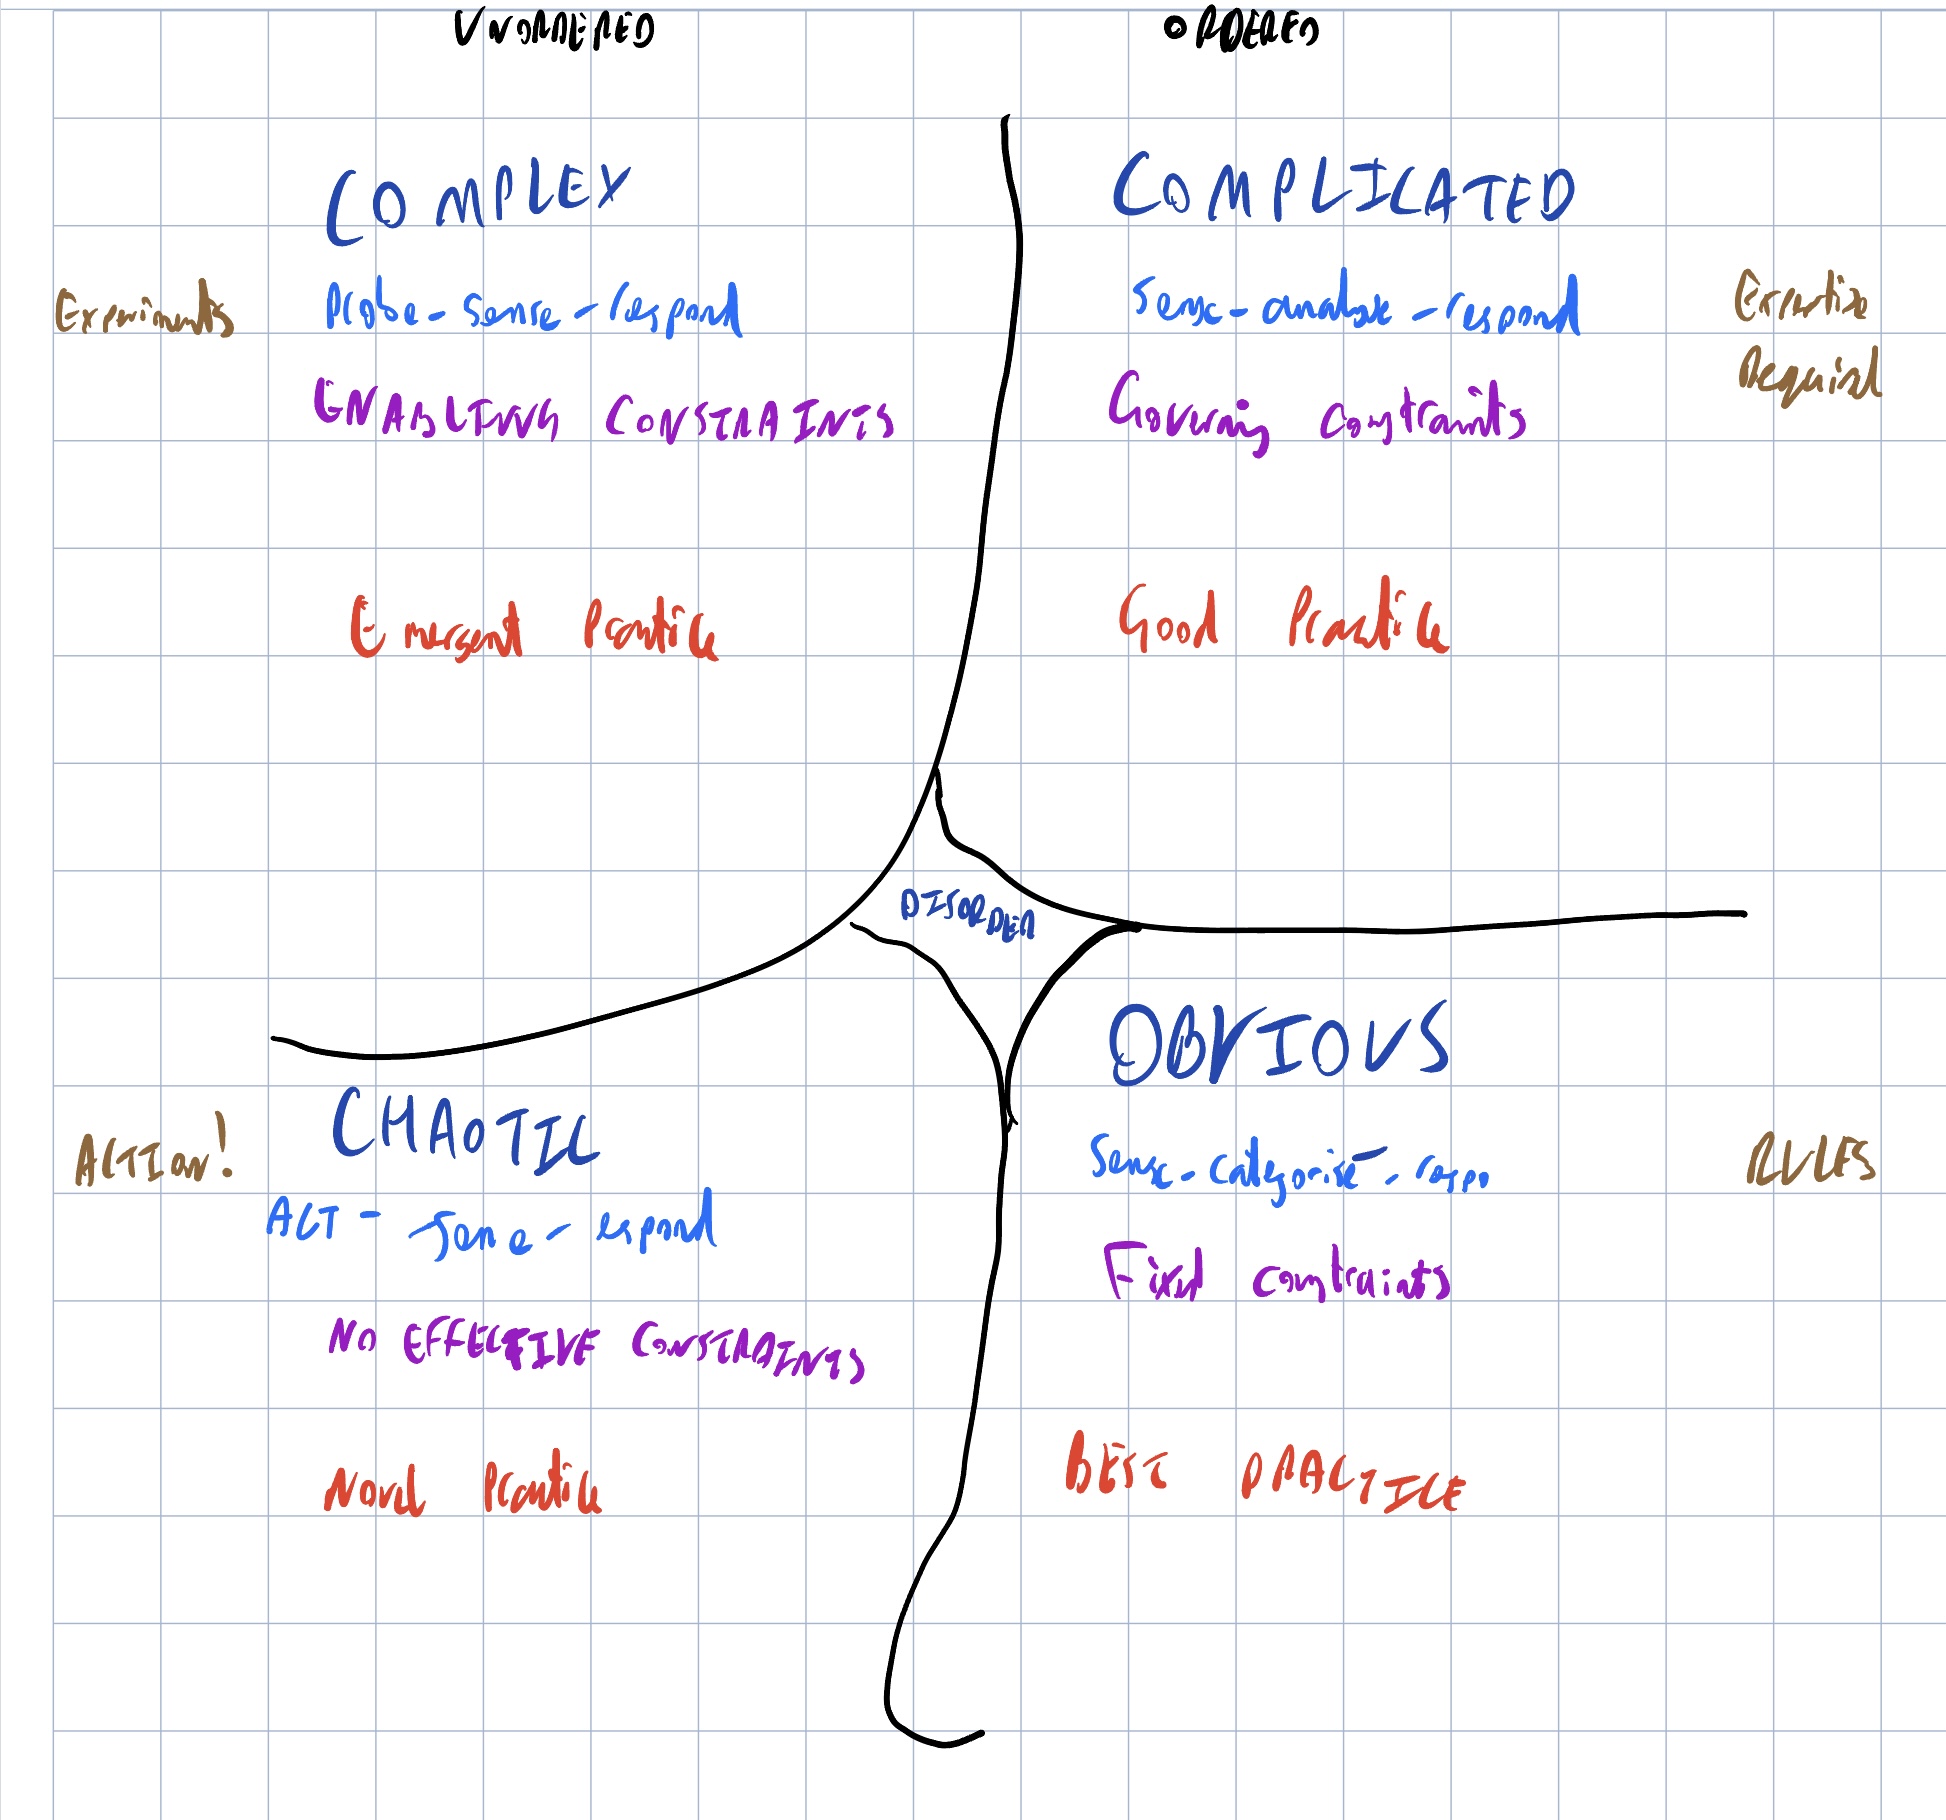 UNORDERED
ORDERED
COMPLEX
Experiments
Probe - Sense - respond
ENABLING CONSTRAINTS
Emergent Practice
COMPLICATED
Sense - analyse - respond
Expertise
Required
Governing constraints
Good Practice
DISORDER
CHAOTIC
ACTION!
ACT - Sense - respond
NO EFFECTIVE CONSTRAINTS
Novel Practice
OBVIOUS
Sense - Categorise - respo
RULES
Fixed constraints
BEST PRACTICE